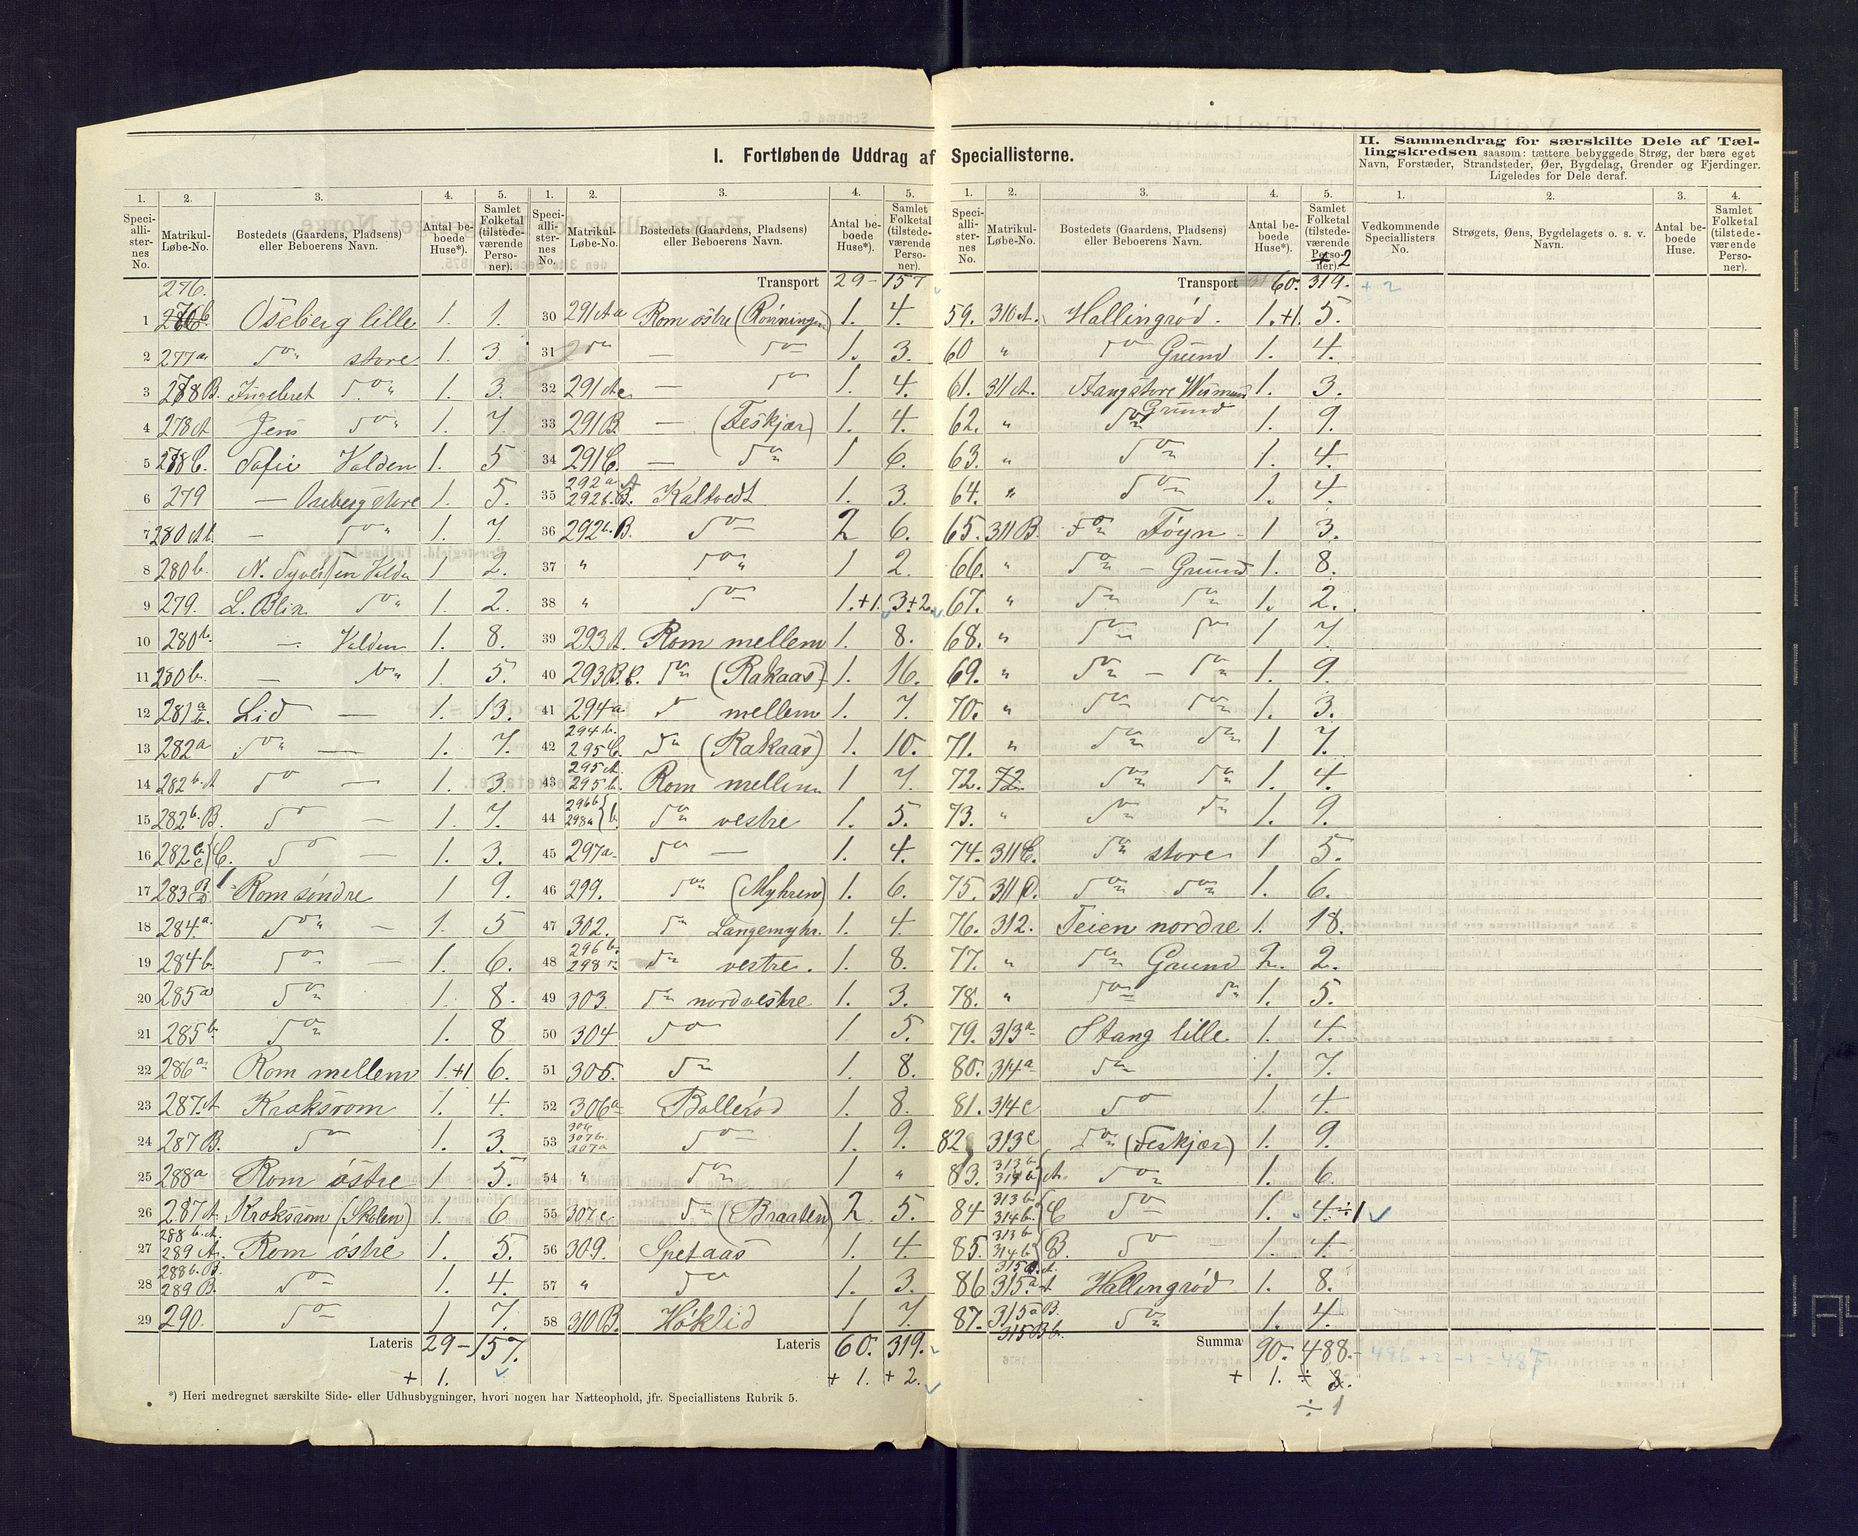 I. Fortløbende Uddrag af Speciallisterne.
II. Sammendrag for særskilte Dele af Tællingskredsen saasom: tættere bebyggede Strøg, der bære eget
Navn, Forstæder, Strandsteder, Øer, Bygdelag, Grender og Fjerdinger.
Ligeledes for Dele deraf.
1. 2. 3. 4. 5. 1. 2. 3. 4. 5. 1. 2. 3. 4. 5. 1. 2. 3. 4.
Speciallisternes No.
Matrikul-Løbe-No.
Bostedets (Gaardens, Pladsens) eller Beboerens Navn.
Antal beboede Huse*).
Samlet Folketal (tilstedeværende Personer).
Speciallisternes No.
Matrikul-Løbe-No.
Bostedets (Gaardens, Pladsens) eller Beboerens Navn.
Antal beboede Huse*).
Samlet Folketal (tilstedeværende Personer).
Speciallisternes No.
Matrikul-Løbe-No.
Bostedets (Gaardens, Pladsens) eller Beboerens Navn.
Antal beboede Huse*).
Samlet Folketal (tilstedeværende Personer).
Vedkommende Speciallisters No.
Strøgets, Øens, Bygdelagets o. s. v. Navn.
Antal beboede Huse.
Samlet Folketal (tilstedeværende Personer).
276.
1 Oseberg lille 1. 1.
2 277a do store 1. 3
3 278B. Ingebret do 1. 3.
4 278A Jens do 1. 7.
5 278C. Sofie Valden 1. 5
6 279 — Oseberg store 1. 5.
7 280 Ab. — do 1. 7.
8 280b. N. Syvertsen 1 2.
9 279. L. Blix do 1. 2.
10 280 — Valden 1. 8.
11 280b. — do 1. 5.
12 281 a b. Lid — 1. 13.
13 282a do — 1. 7.
14 282b.A do — 1. 3.
15 282b.B. do — 1. 7.
16 282 C. do — 1. 3.
17 283 Rom søndre 1 9.
18 284a. do — 1. 5
19 284b. do — 1. 6.
20 285a do 1. 8.
21 285b. do 1. 8
22 286a. Rom mellem 1.+1 6.
23 287.A Kroksrom 1. 4.
24 287B. do 1. 3.
25 288a Rom østre 1. 5.
26 287A. Kroksrom (Skolen) 1. 6
27 288b.A. 289A. Rom østre 1. 5.
28 288b.B. 289B. do 1. 4.
29 290. do 1 7.
Lateris 29 — 157.
+ 1.
Transport 29 - 157
30 291Aa Rom østre (Rønningen) 1. 4.
31 do — do 1. 3.
32 291Ac — do 1. 4.
33 291B. — (Feskjær) 1. 4.
34 291C. — do 1 6.
35 292a A 292b.B. Kaltvedt 1. 3.
36 292b.B. do 2 6.
37 " do 1 2.
38 " do 1.+1. 3+2.
39 293A. Rom mellem 1. 8.
40 293B.C. do (Rakaas) 1. 16.
41 294a do mellem 1. 7.
42 294b. 295C. do (Rakaas) 1. 10.
43 295A. 295b. Rom mellem 1 7.
44 296b 298a do vestre 1. 5.
45 297a. do — 1. 4.
46 299. do (Myhren) 1. 6.
47 302. do Langemyhr. 1. 4.
48 296b. 298 do vestre. 1. 8.
49 303. do nordvestre 1. 3.
50 304 do 1 5.
51 305. do 1. 8.
52 306a Bollerød 1. 8.
53 307b. 307a do 1. 9.
54 " do 1 "
55 307c. do (Braaten) 2. 5.
56 309. Spetaas 1. 4.
57 " do 1. 3.
58 310B. Høklid 1 7.
Lateris 60. 319.
+ 1. + 2.
+ 2
Transport 60. 319. + 2
59. 310A. Hallingrød. 1.+1. 5.
60 " do Grund 1. 4.
61. 311A. Stang store 1. 3.
62. " do Grund 1. 9.
63. " do 1. 4.
64. " do 1. 4.
65. 311B. do Føyn 1 3.
66. " do — Grund 1. 8.
67. " do do 1. 2.
68. " do do 1 7.
69. " do — do 1. 9.
70. " do do 1. 3.
71. " do do 1 7.
72. 72. do do 1. 4.
73. " do do 1. 9.
74. 311C. do store 1 5.
75. 311D. do do 1. 6.
76. 312. Teien nordre 1. 18.
77. " do Grund 2. 2.
78. " do do 1. 5.
79. 313a Stang lille. 1. 4.
80. 314a do 1. 7.
81. 314c do 1. 4.
82 313c do (Feskjær) 1. 9.
83. 313b 314b A. do 1. 6.
84 313b. 314b. C do 1. 4 ÷ 1
85. 313b 314b B. do — 1. 4.
86 315A. 315a Hallingrød 1. 8.
87. 315a B. 315Bb. do 1. 4.
Summa 90. 488. 486 + 2 - 1 = 487
+ 1. ÷ 8.
÷ 1
*) Heri medregnet særskilte Side- eller Udhusbygninger, hvori nogen har Natteophold, jfr. Speciallistens Rubrik 5.